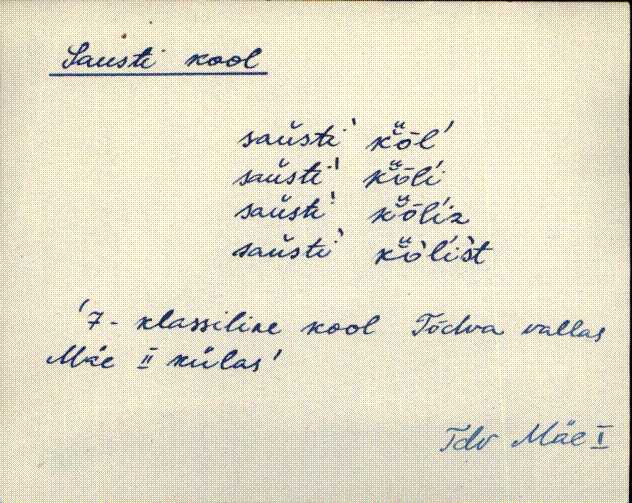 Sausti kool
saŭsti` kŭōl'
saŭsti` kŭōĺi
saŭsti` kŭōĺiz
saŭsti` kŭò̄ĺist
'7-klassiline kool Tõdva vallas
Mäe II külas'
Tdv Mäe I